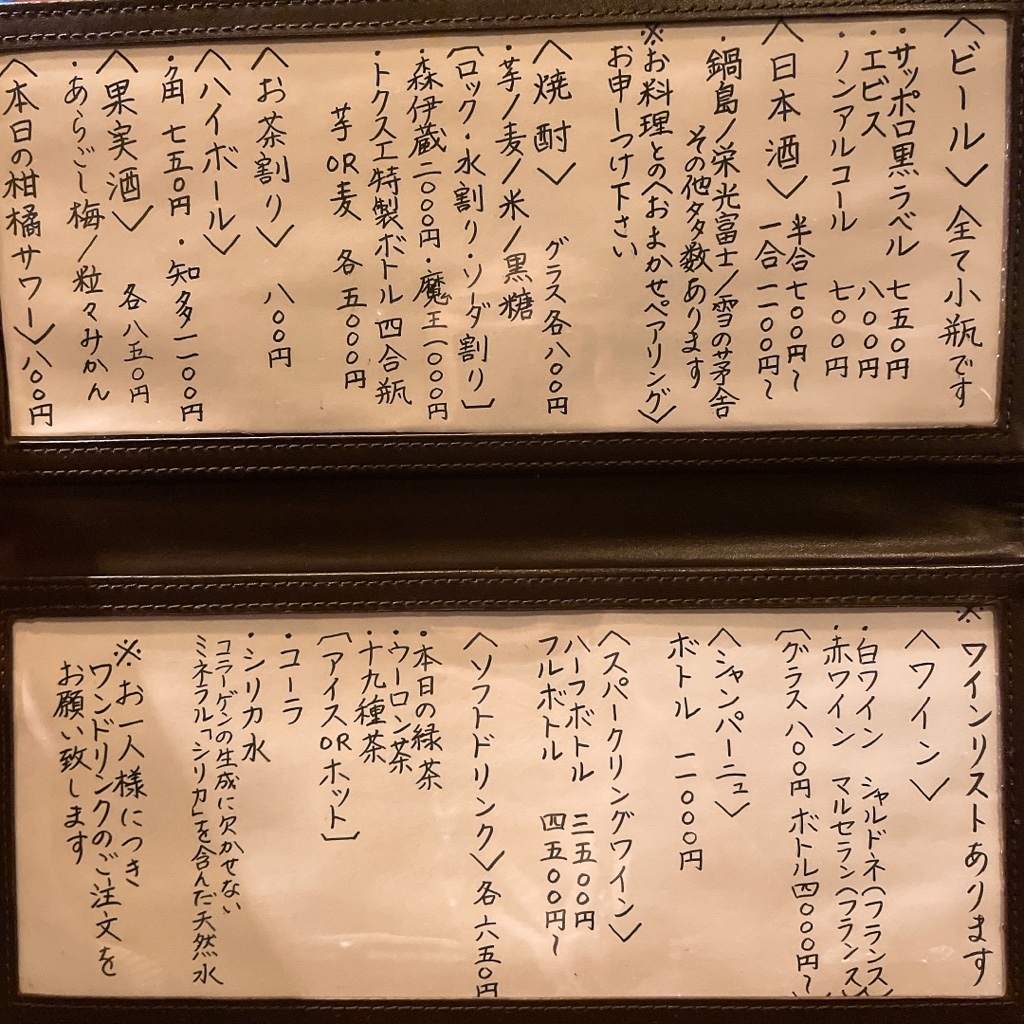 〈ビール〉全て小瓶です
・サッポロ黒ラベル 七五〇円
・エビス 八〇〇円
・ノンアルコール 七〇〇円
〈日本酒〉半合七〇〇円〜
一合一一〇〇円〜
・鍋島/栄光冨士/雪の茅舎
その他多数あります
※お料理との〈おまかせペアリング〉
お申しつけ下さい
〈焼酎〉 グラス各八〇〇円
・芋/麦/米/黒糖
〔ロック・水割り・ソーダ割り〕
・森伊蔵二〇〇〇円・魔王一〇〇〇円
・トクスエ特製ボトル 四合瓶
芋OR麦 各五〇〇〇円
〈お茶割り〉 八〇〇円
〈ハイボール〉
・角 七五〇円 ・知多一一〇〇円
〈果実酒〉 各八五〇円
・あらごし梅/粒々みかん
〈本日の柑橘サワー〉八〇〇円
※ワインリストあります
〈ワイン〉
・白ワイン シャルドネ(フランス)
・赤ワイン マルセラン(フランス)
〔グラス八〇〇円 ボトル四〇〇〇円〜〕
〈シャンパーニュ〉
ボトル 一二〇〇〇円
〈スパークリングワイン〉
ハーフボトル 三五〇〇円
フルボトル 四五〇〇円〜
〈ソフトドリンク〉各六五〇円
・本日の緑茶
・ウーロン茶
・十九種茶
〔アイスORホット〕
・コーラ
・シリカ水
コラーゲンの生成に欠かせない
ミネラル「シリカ」を含んだ天然水
※お一人様につき
ワンドリンクのご注文を
お願い致します